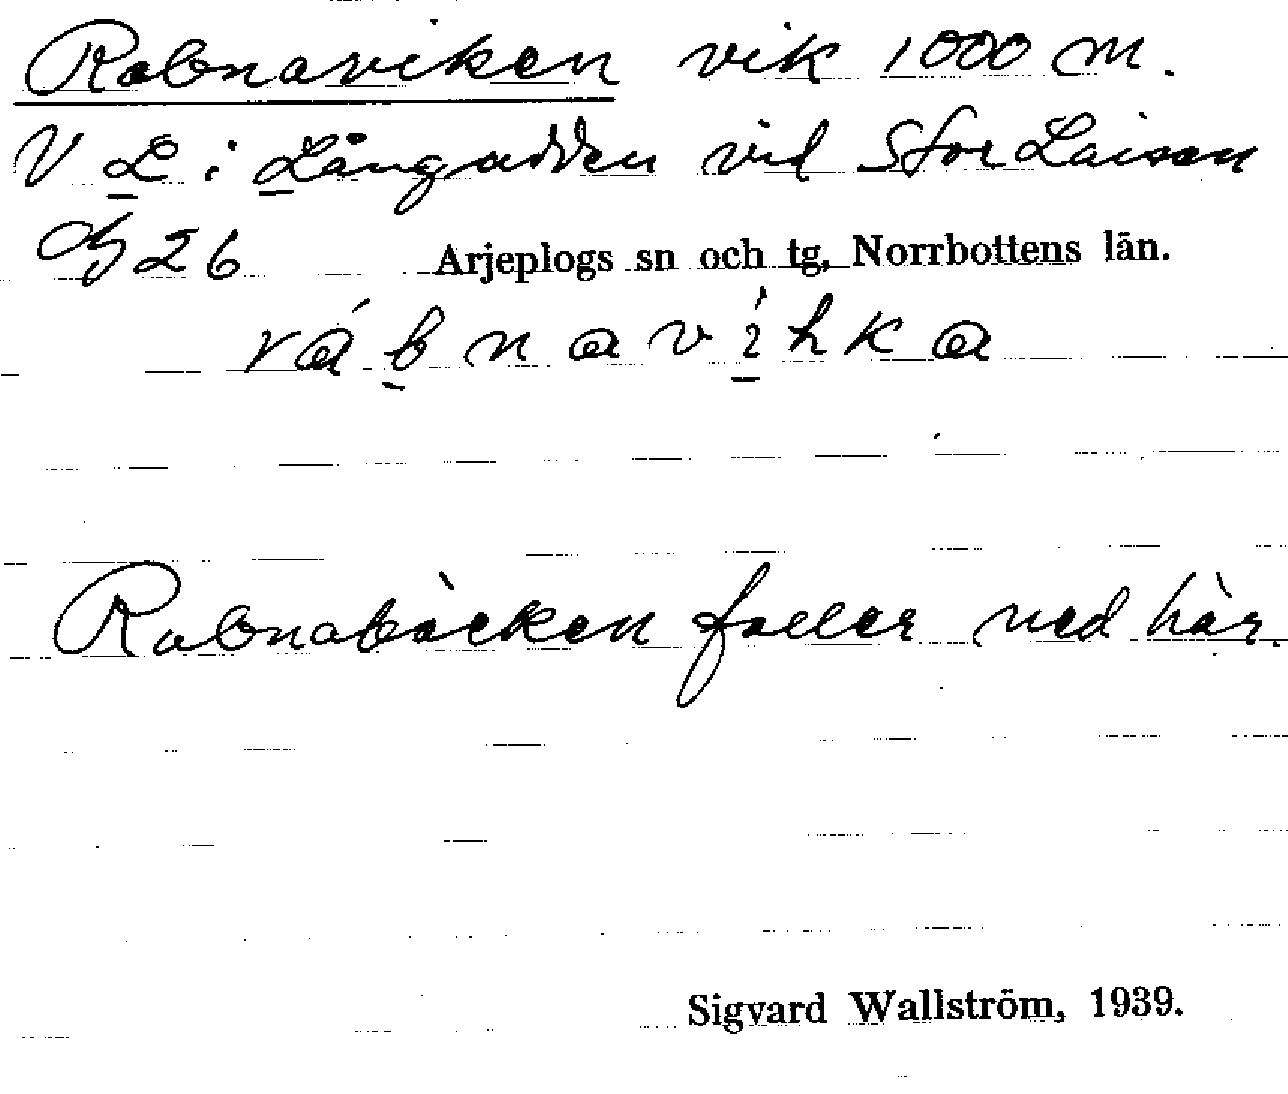 Rabnaviken vik 1000 m.
V L i Långudden vid Stor Laisan
26 Arjeplogs sn och tg, Norrbottens län.
rábnavihka
Rabnabäcken faller ned här.
Sigvard Wallström, 1939.